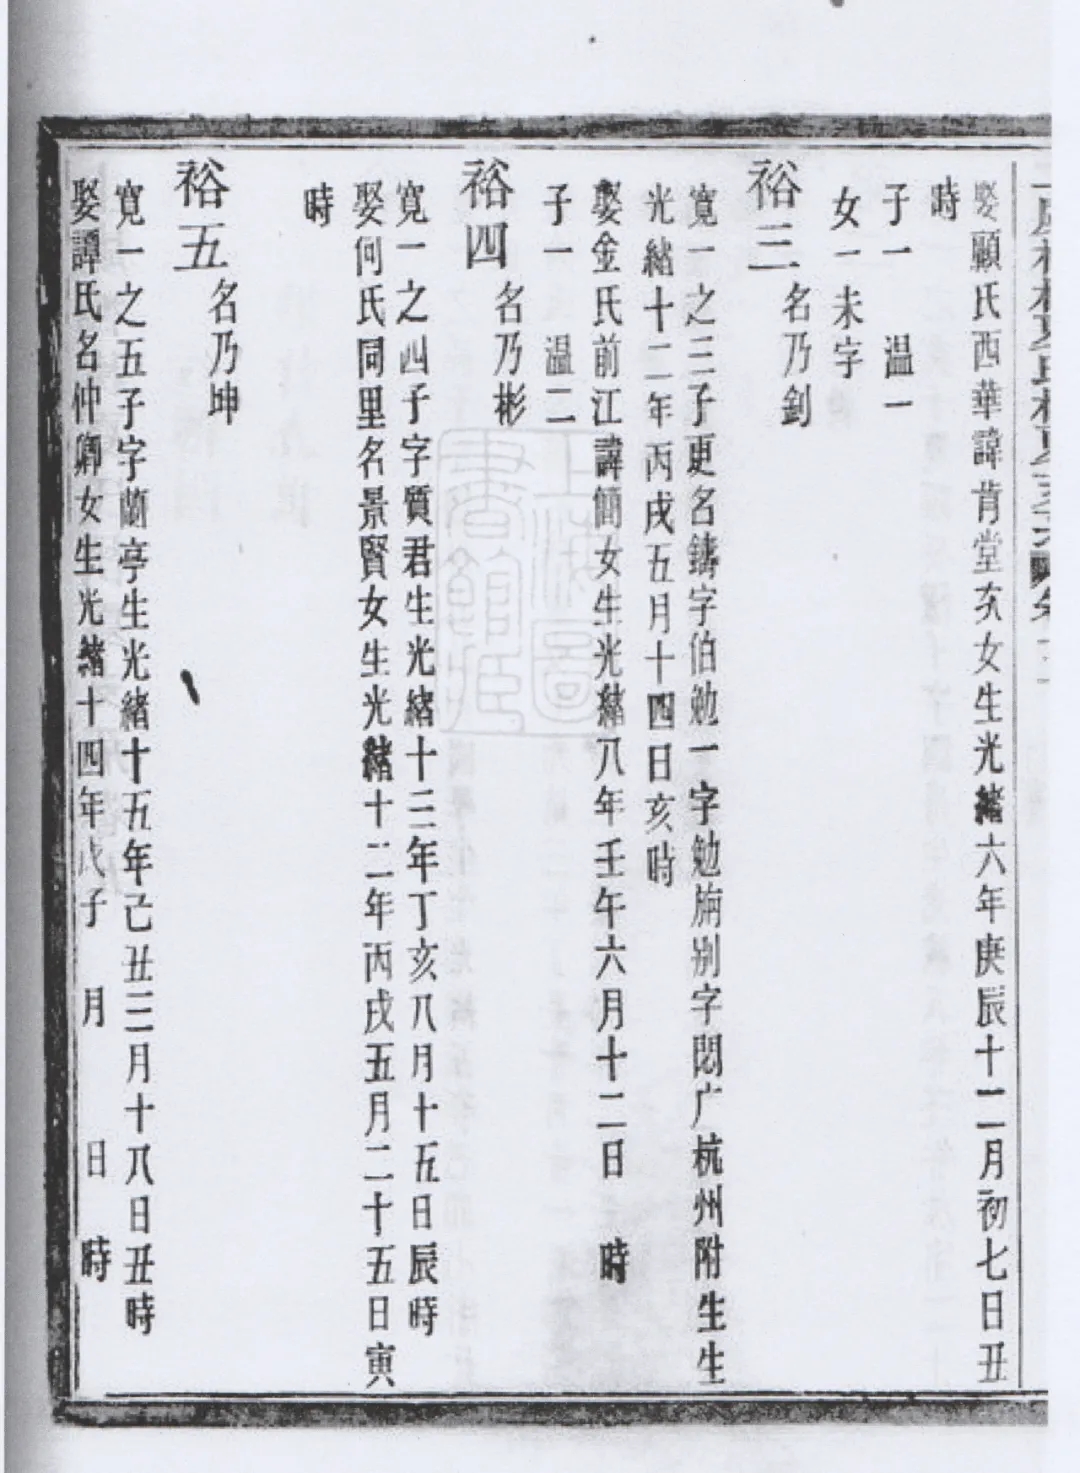 娶顧氏西華諱肯堂次女生光緒六年庚辰十二月初七日丑
時
子一 温一
女一未字
裕三 名乃釗
寬一之三子更名鑄字伯勉一字勉旃别字悶广杭州附生生
光緒十二年丙戌五月十四日亥時
娶金氏前江諱簡女生光緒八年壬午六月十二日 時
子一 温二
裕四 名乃彬
寬一之四子字質君生光緒十三年丁亥八月十五日辰時
娶何氏同里名景賢女生光緒十二年丙戌五月二十五日寅
時
裕五 名乃坤
寬一之五子字蘭亭生光緒十五年己丑三月十八日丑時
娶譚氏名仲卿女生光緒十四年戊子 月 日 時
上海圖書館藏